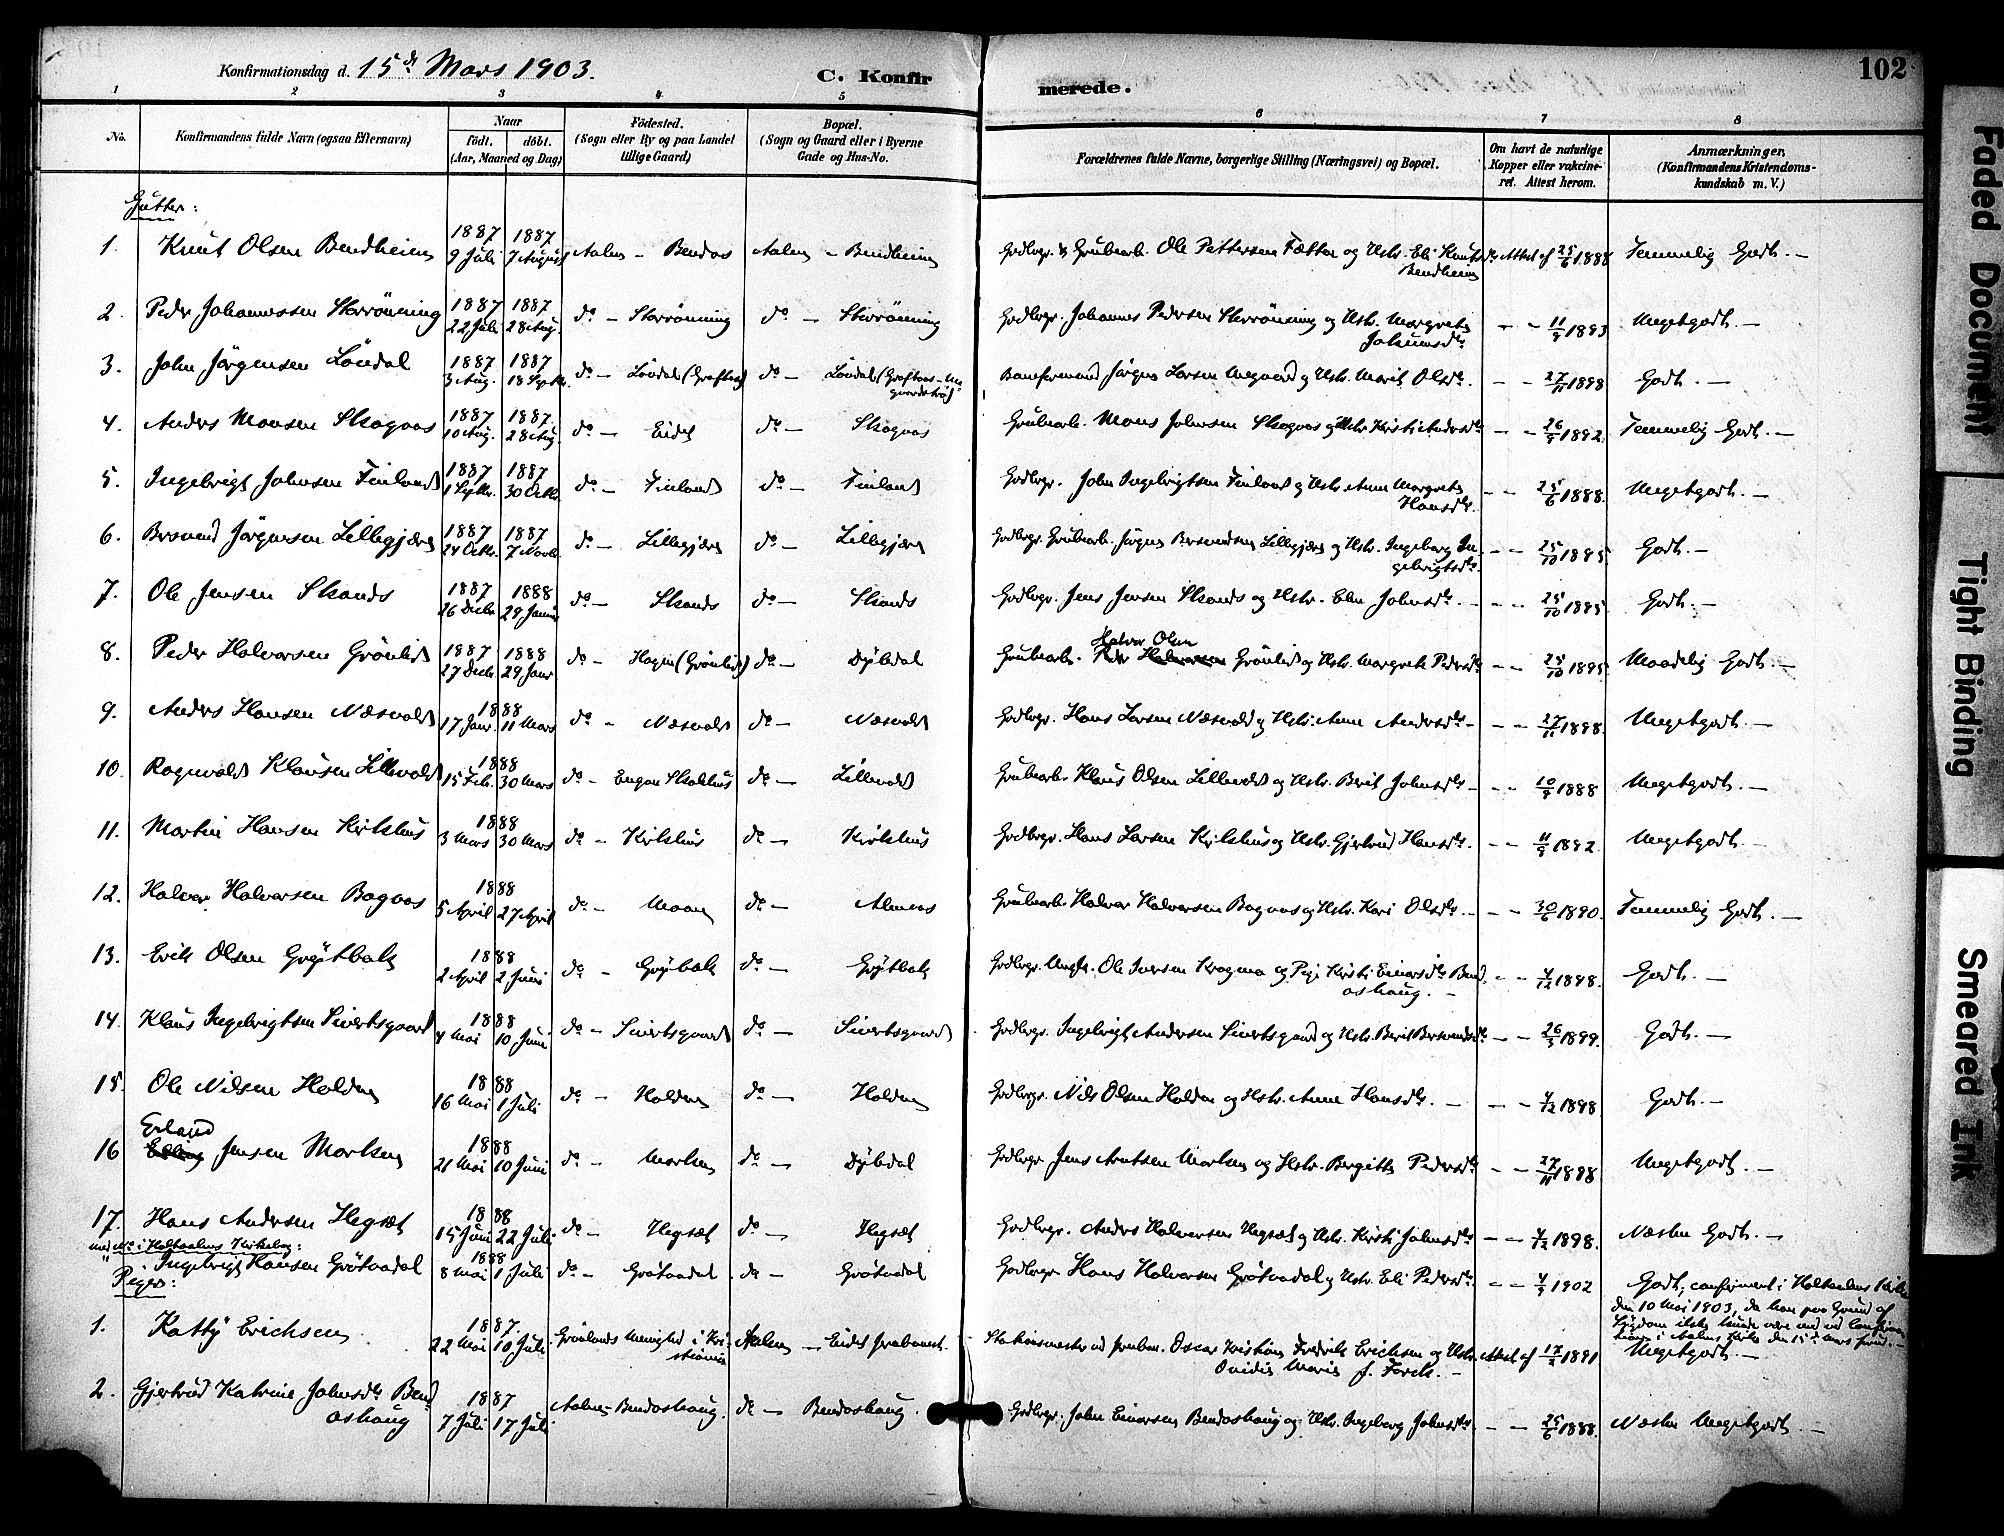 Konfirmationsdag d. 15de Mars 1903. C. Konfir merede. 102
1 2 3 4 5 6 7 8
No. Konfirmandens fulde Navn (ogsaa Efternavn) Naar födt. döbt. (Aar, Maaned og Dag) Födested. (Sogn eller By og paa Landet tillige Gaard) Bopæl. (Sogn og Gaard eller i Byerne Gade og Hus-No. Forældrenes fulde Navne, borgerlige Stilling (Næringsvei) og Bopæl. Om havt de naturlige Kopper eller vakcineret. Attest herom. Anmærkninger, (Konfirmandens Kristendomskundskab m. V.)
Gutter:
1. Knut Olsen Bendheim 1887 9 Juli 1887 7 August Aalen - Bendos Aalen - Bendheim Grubearb. Ole Pettersen Fætten og Hstr. Eli Knutsdtr Bendheim Attest af 25/6 1888 Temmelig Godt. -
2. Peder Johannessen Storrönning 1887 22 Juli 1887 28 Aug. do - Storrönning do - Storrönning Grdbrgr. Johannes Pedersen Storrönning og Hstr. Margrete Johansdtr - - 11/9 1893 Megetgodt. -
3. John Jörgensen Löndal 1887 3 Aug. 1887 18 Septbr. do - Löndal (Graftaas) do - Löndal Jörgen Larsen og Hstr. Marit Olsdtr. - - 27/11 1898 Godt. -
4. Anders Monsen Skogaas 1887 10 Aug. 1887 28 Aug. do - Eidet do - Skogaas Grubearb. Mons Johnsen Skogaas og Hstr. Kristi Andersdtr - - 26/9 1892. Temmelig Godt. -
5. Ingebrigt Johnsen Finland 1887 1 Septbr. 1887 30 Octb. do - Finland do - Finland Grdbrgr. John Ingebrigtsen Finland og Hstr. Anne Margrete Hansdtr. - - 25/6 1888. Megetgodt. -
6. Bersvend Jörgensen Lillegjære 1887 24 Octbr. 1887 7 Novb. do - Lillegjære do - Lillegjære Grdbrgr. Grubearb. Jörgen Bersvendsen Lillegjære og Hstr. Ingeborg Ingebrigtsdtr. - - 25/10 1895 Godt. -
7. Ole Jensen Skands 1887 26 Decbr 1888 29 Januar do - Skands do - Skands Grdbrgr. Jens Jensen Skands og Hstr. Elen Johnsdtr. - - - 25/10 1895 Godt. -
8. Peder Halvorsen Grönlid 1887 27 Decb. 1888 29 Januar do - Hagen (Grönlid) do - Dybdal Grubearb. Halvor Olsen Grönlid og Hstr. Margrete Pedersdtr - - 25/10 1895 Maadelig Godt. -
9. Anders Hansen Næsvold 1888 17 Janr. 11 Mars do - Næsvold do - Næsvold Grdbrgr. Hans Larsen Næsvold og Hstr. Anne Andersdtr - - - 27/11 1898. Megetgodt. -
10. Ragnvald Klausen Lillevold 1888 15 Feb. 30 Mars do - Engan Skolehus do - Lillevold Grubearb. Klaus Olsen Lillevold og Hstr. Berit Johnsdtr - - - 10/9 1888 Megetgodt. -
11. Martin Hansen Kirkhus 1888 3 Mars 30 Mars do - Kirkhus do - Kirkhus Grdbrgr. Hans Larsen Kirkhus og Hstr. Gjertrud Hansdtr. - - 11/9 1892. Megetgodt. -
12. Halvor Halvorsen Bogaas 1888 5 April 27 April do - Moan do - Almaas Grubearb. Halvor Halvorsen Bogaas og Hstr. Kari Olsdtr. - - - 30/6 1890. Temmelig Godt. -
13. Erik Olsen Gröytbak 1888 2 April 2 Juni do - Gröybak do - Gröytbak Grdbrgr. Ungk. Ole Iversen Kragmo og Pige Kristi Einarsdtr. Bendoshaug. - - - 4/12 1898. Godt. -
14. Klaus Ingebrigtsen Sivertsgaard 1888 4 Mai 10 Juni do - Sivertsgaard do - Sivertsgaard Grdbrgr. Ingebrigt Andersen Sivertsgaard og Hstr. Berit Bersvendsdtr - - 26/5 1899. Godt. -
15. Ole Nilsen Holden 1888 16 Mai 1 Juli do - Holden do - Holden Grdbrgr. Nils Olsen Holden og Hstr. Anne Hansdtr. - - - 4/12 1898 Godt. -
16 Erland Jensen Morken 1888 21 Mai 10 Juni do - Morken do - Dybdal Grdbrgr. Jens Arntsen Morken og Hstr. Bergitta Pedersdtr. - - 27/11 1898 Megetgodt. -
17. Hans Andersen Hegset 1888 15 Juni 22 Juli do - Hegset do - Hegset Grdbrgr. Anders Halvorsen Hegset og Hstr. Kristi Johnsdtr - - 4/12 1898. Næsten Godt. -
med No i Holtaalens Kirkebog:
" Ingebrigt Hansen Grötaadal 1888 8 Mai 1 Juli do - Grötaadal do - Grötaadal Grdbrgr. Hans Halvorsen Grötaadal og Hstr. Eli Pedersdtr. - - 4/9 1902 Godt, confirmert i Holtaalens Kirke den 10 Mai 1903, da han paa Grund af Sygdom ikke kunde være med ved Confirmationen i Aalens Kirke den 15de Mars
Piger:
1. Katty Erichsen 1887 22 Mai 10 Juli Grönlands Menighed i Kristiania Aalen - Eidet Stationsmester Oscar Kristian Fredrik Erichsen og Hstr. Ovidia Marie f. Forck. - Attest af 17/2 1891 Megetgodt. -
2. Gjertrud Katrine Johnsdtr Bendoshaug 1887 7 Juli 17 Juli Aalen - Bendoshaug. do - Bendoshaug. Grdbrgr. John Einarsen Bendoshaug og Hstr. Ingeborg Johnsdtr. - - 25/6 1888. Næsten Megetgodt. -
Faded Document
Tight Binding
Smeared Ink